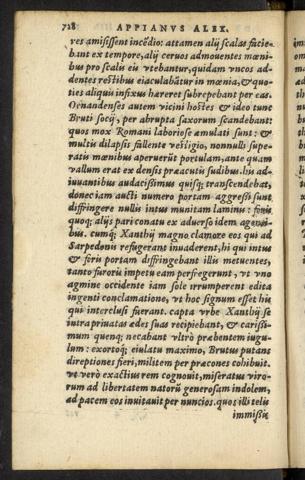 728 APPIANVS ALEX.
res amisissent incẽdio: attamen alij scalas facie-
bant ex tempore, alij ceruos admouentes mœni-
bus pro scalis eis vtebantur, quidam vncos ad-
dentes restibus eiaculabãtur in mœnia, & quo-
ties aliquis infixus hæreret subrepebant per eas.
Oenandenses autem vicini hostes & ideo tunc
Bruti socij, per abrupta saxorum scandebant:
quos mox Romani laboriose æmulati sunt: &
multis dilapsis fallente vestigio, nonnulli supe-
ratis mœnibus aperuerũt portulam, ante quam
vallum erat ex densis præacutis sudibus. his ad-
iuuantibus audacissimus quisq; transcendebat,
donec iam aucti numero portam aggressi sunt
diffringere nullis intus munitam laminis: foris
quoq; alijs pari conatu ex aduerso idem agenti-
bus. cumq; Xanthij magno clamore eos qui ad
Sarpedonis refugerant inuaderent, hi qui intus
& foris portam diffringebant illis metuentes,
tanto furoris impetu eam perfregerunt, vt vno
agmine occidente iam sole irrumperent edita
ingenti conclamatione, vt hoc signum esset his
qui interclusi fuerant. capta vrbe Xanthij se
intra priuatas ædes suas recipiebant, & carissi-
mum quenq; necabant vltrò præbentem iugu-
lum: exortoq; eiulatu maximo, Brutus putans
direptiones fieri, militem per præcones cohibuit.
vt verò exactius rem cognouit, miseratus viro-
rum ad libertatem natorũ generosam indolem,
ad pacem eos inuitauit per nuncios. quos illi telis
immissis